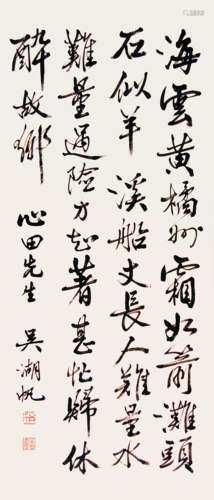 海雲黄橘州霜如箭灘頭
石似羊溪船丈長人難量水
難量過險方知著甚忙歸休
醉故鄉
心田先生 吴湖帆